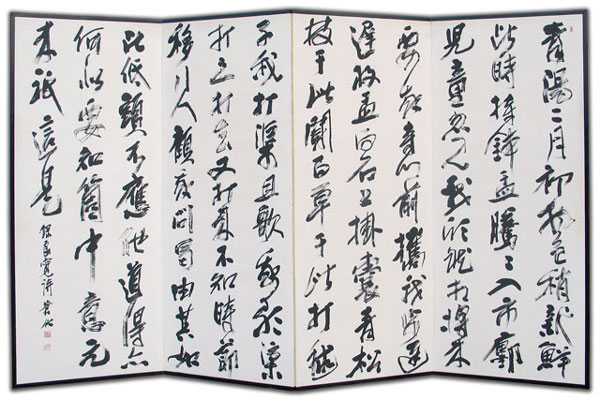 青陽二月初物色稍新鮮
此時持鉢盂騰々入市鄽
児童忽見我欣然相将来
要我寺門前携我歩遅
遅放盂白石上掛嚢青松
枝于此闘百草于此打毬
子我打渠且歌我歌渠
打之打去又打来不知時節
移行人顧我問曷由其如
此低頭不應他道得亦
何似要知箇中意元
来祇這是
寛詩